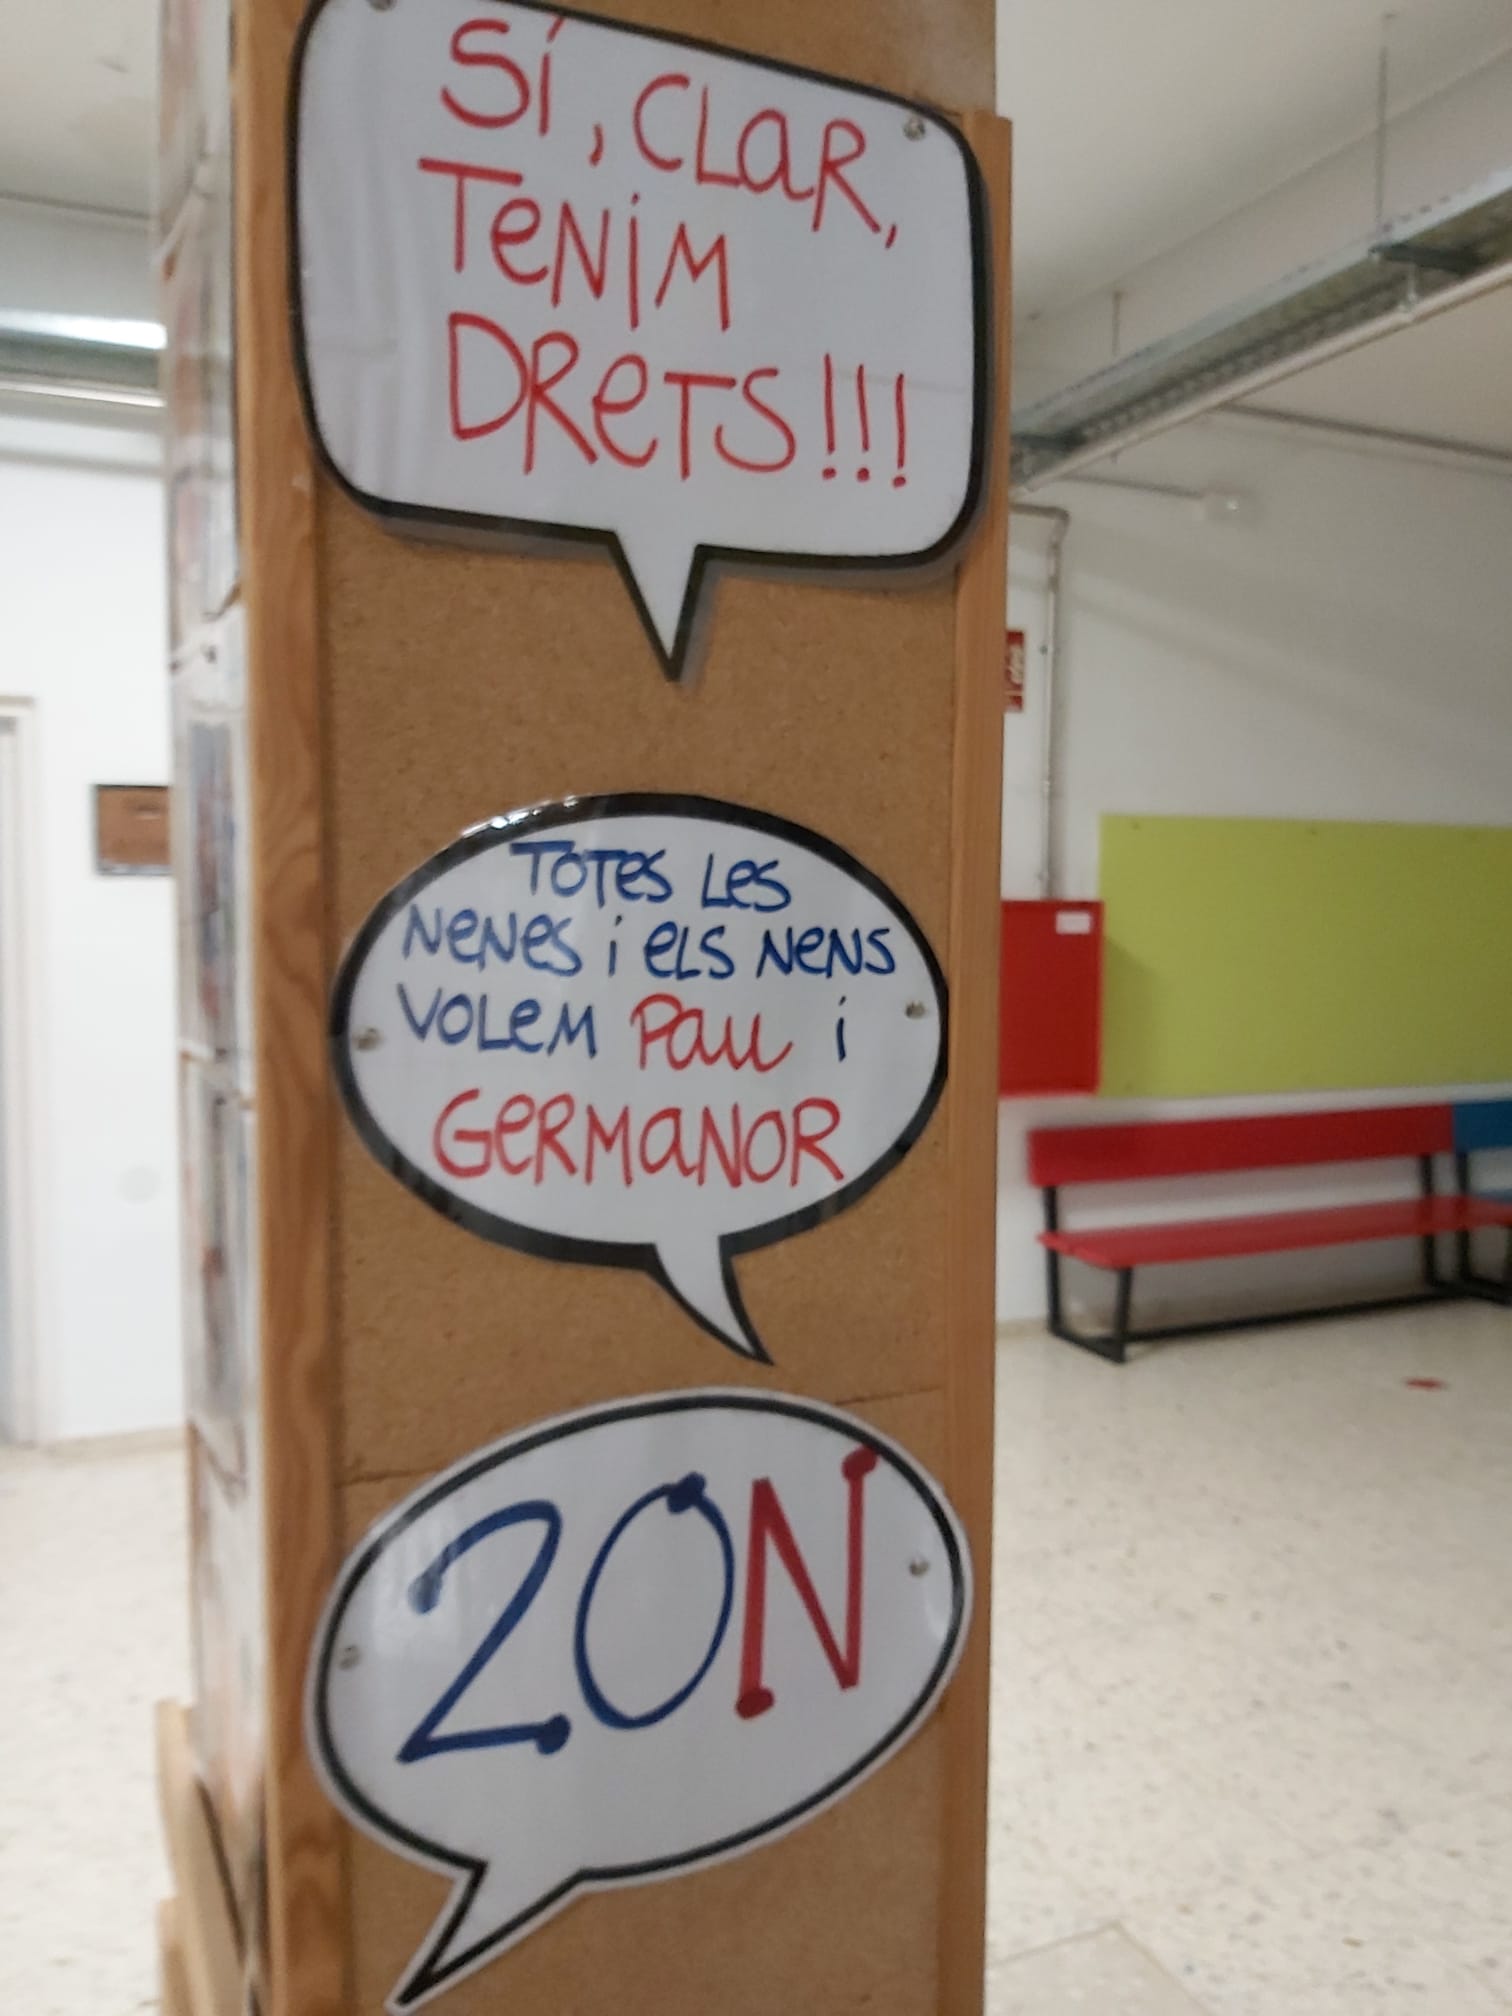 Sí, CLaR,
TeNiM
DReTS!!!
ToTes Les
NeNes i eLS NeNS
VoLeM Pau i
GeRMaNOR
20N